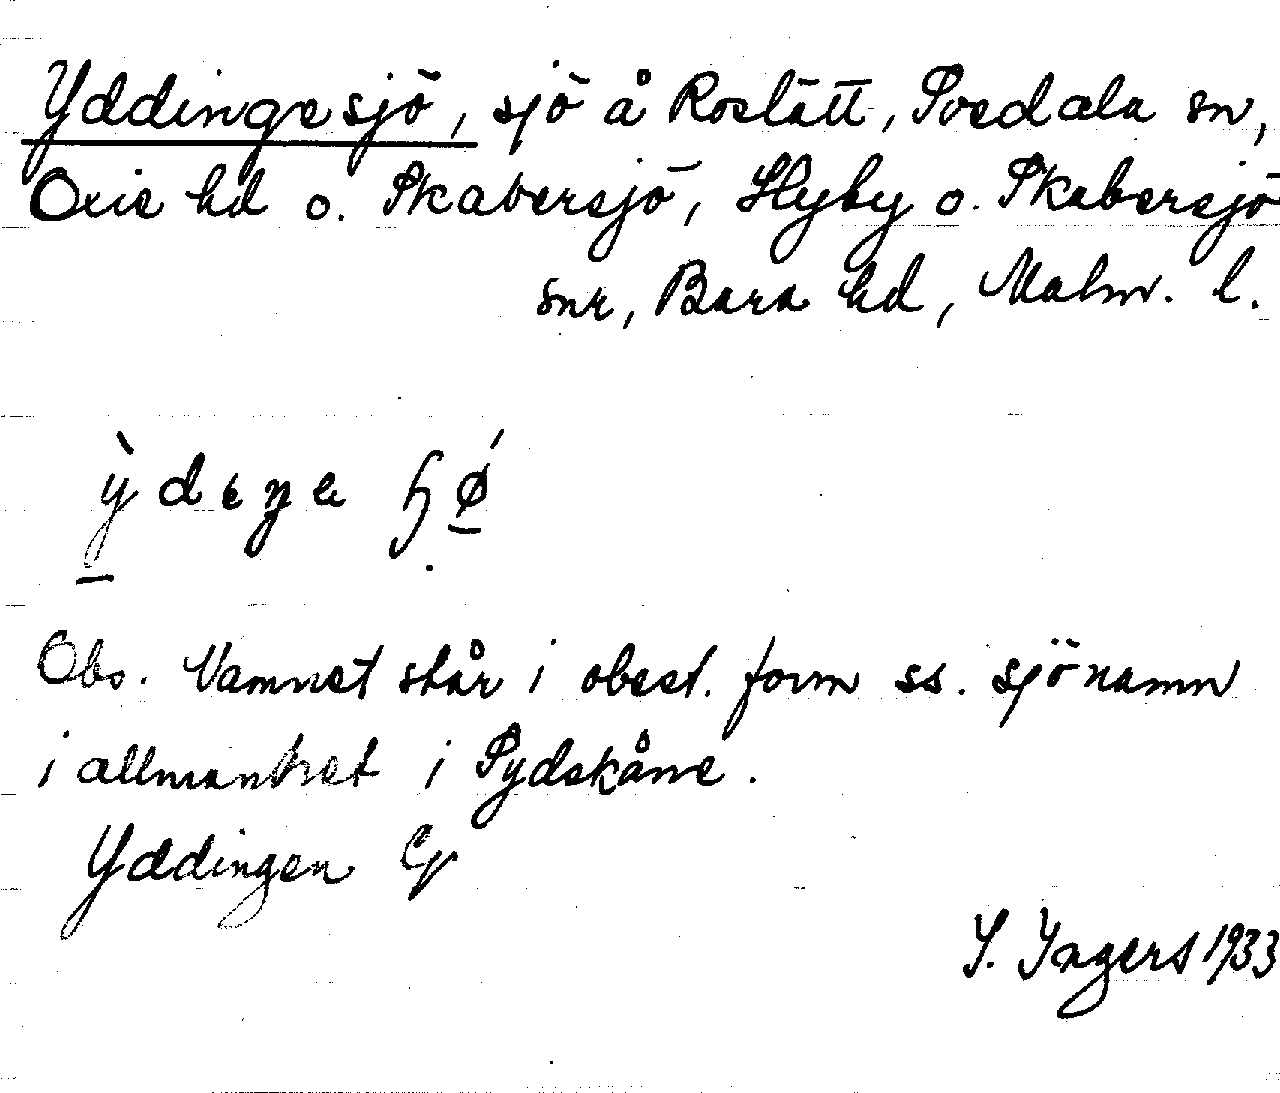 Yddingesjö, sjö å Roslätt, Svedala sn,
Oxie hd o. Skabersjö, Hyby o. Skabersjö
snr, Bara hd, Malm. l.
Obs. Namnet står i obest. form ss. sjönamn
i allmänhet i Sydskåne.
Yddingen
I. Ingers 1933